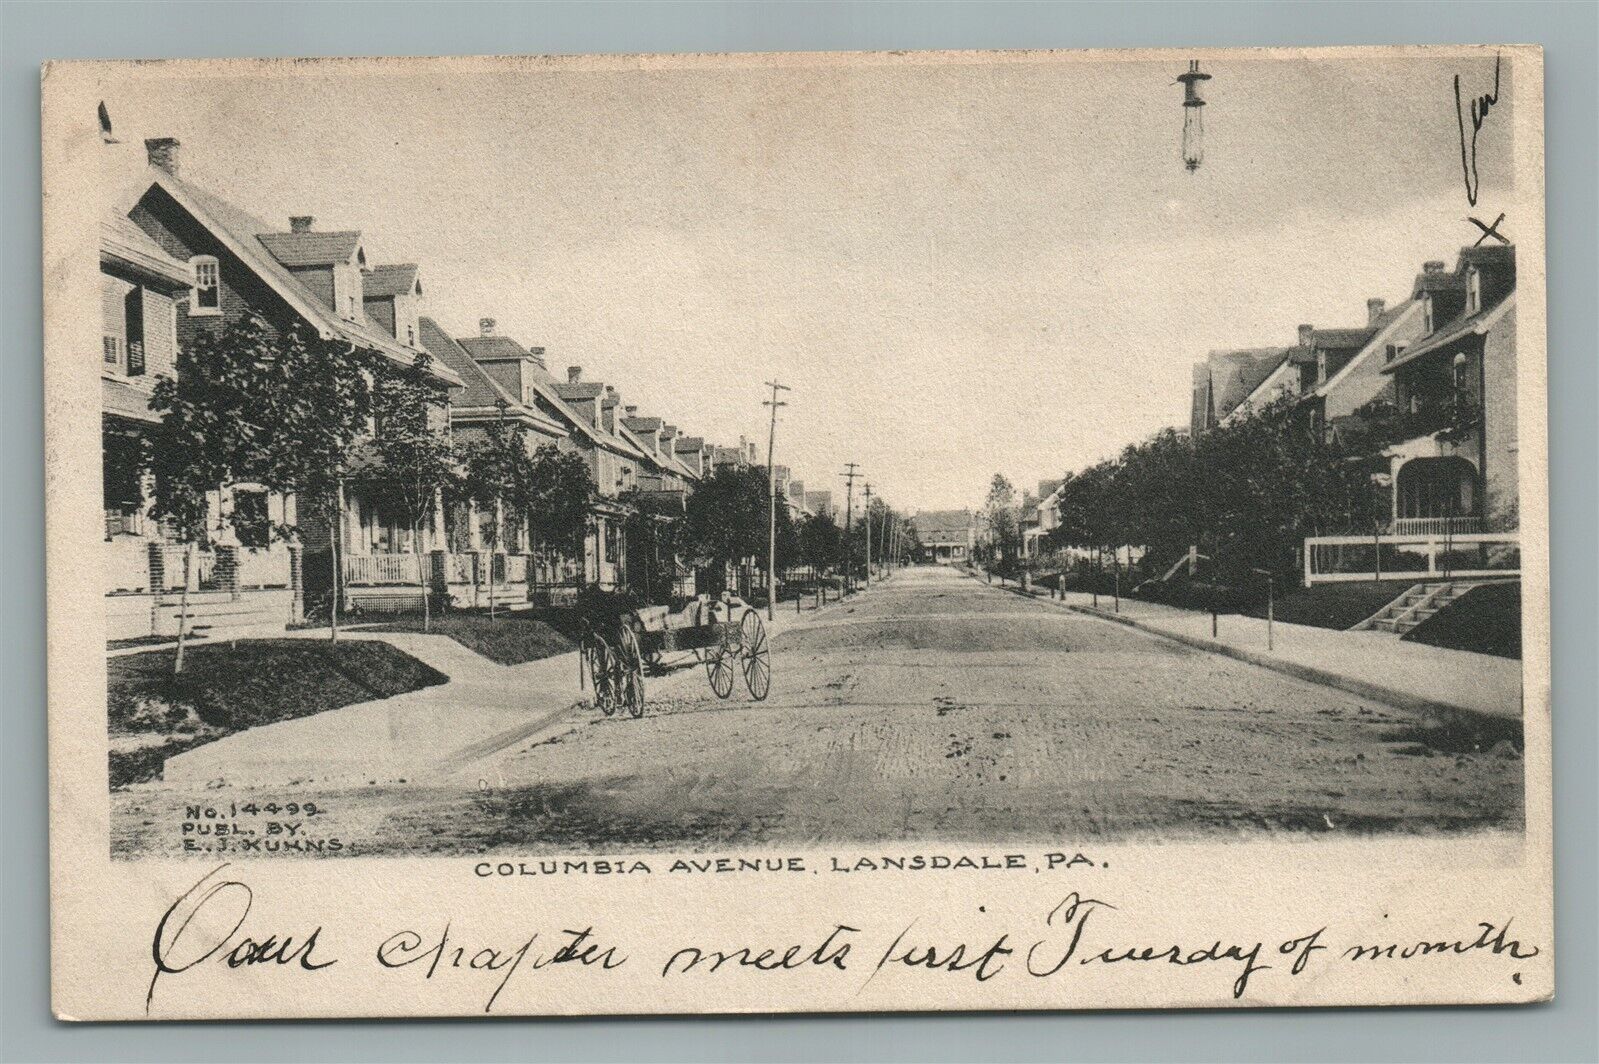 X
No. 14499
PUBL. BY.
E. J. KUHNS
COLUMBIA AVENUE, LANSDALE, PA.
Our chapter meets first Tuesday of month.